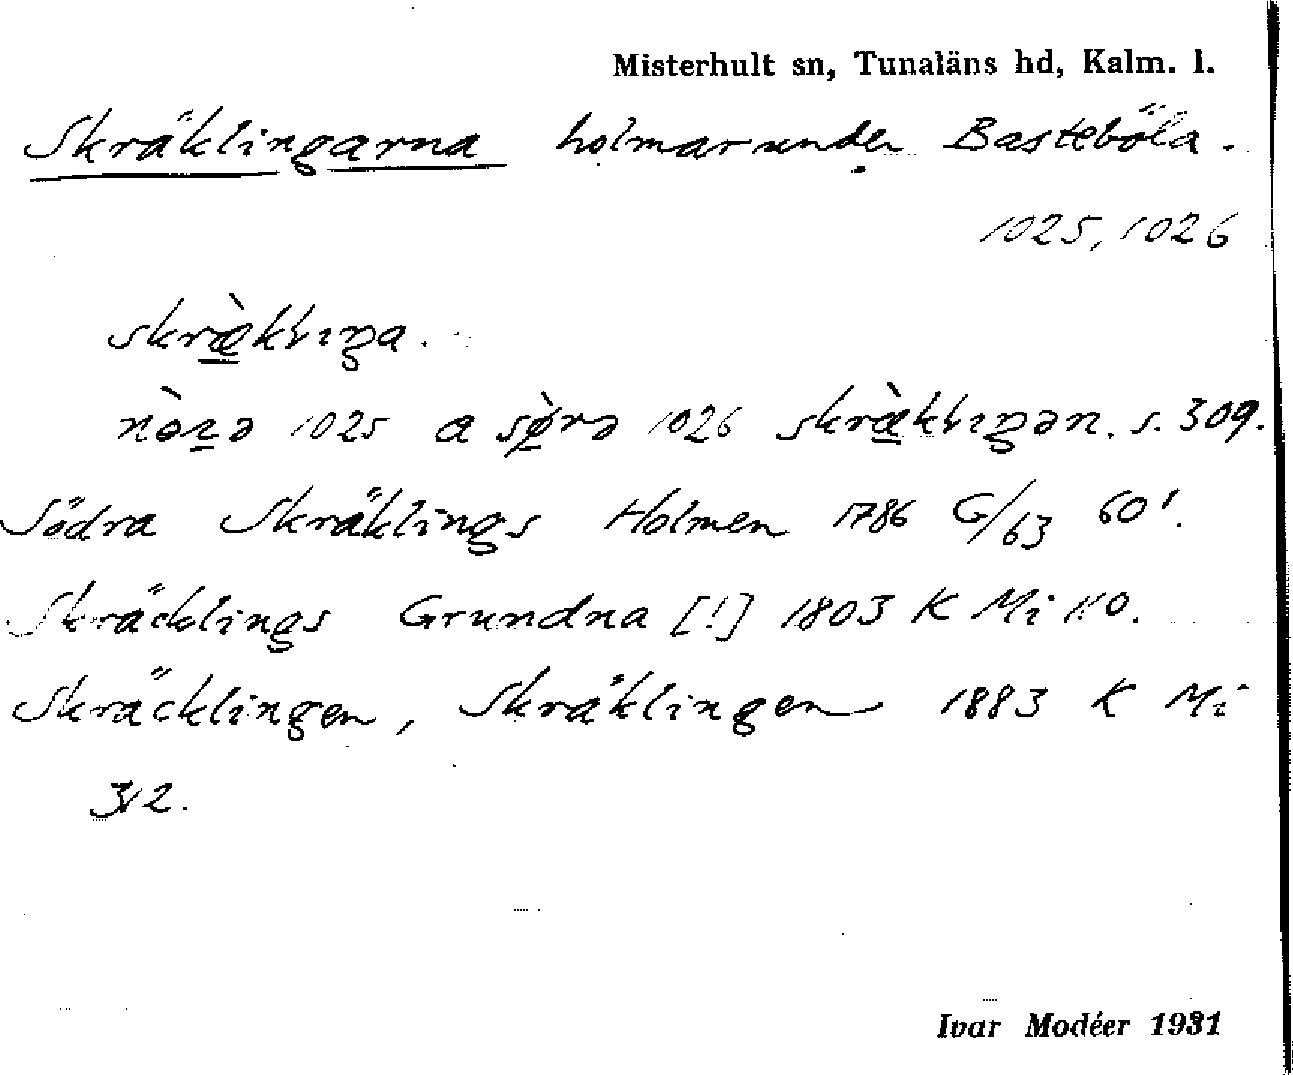 Misterhult sn, Tunaläns hd, Kalm. l.
Skräklingarna holmar under Basteböla.
1025, 1026
skræ̀klıŋa.
1025 a sø̀rə 1026 skræ̀klıŋən. s. 309.
Södra Skräklings Holmen 1786 G/63 60'.
Skräcklings Grundna [!] 1803 K Mi 110.
Skräcklingen, Skräklingen 1883 K Mi
312.
Ivar Modéer 1931